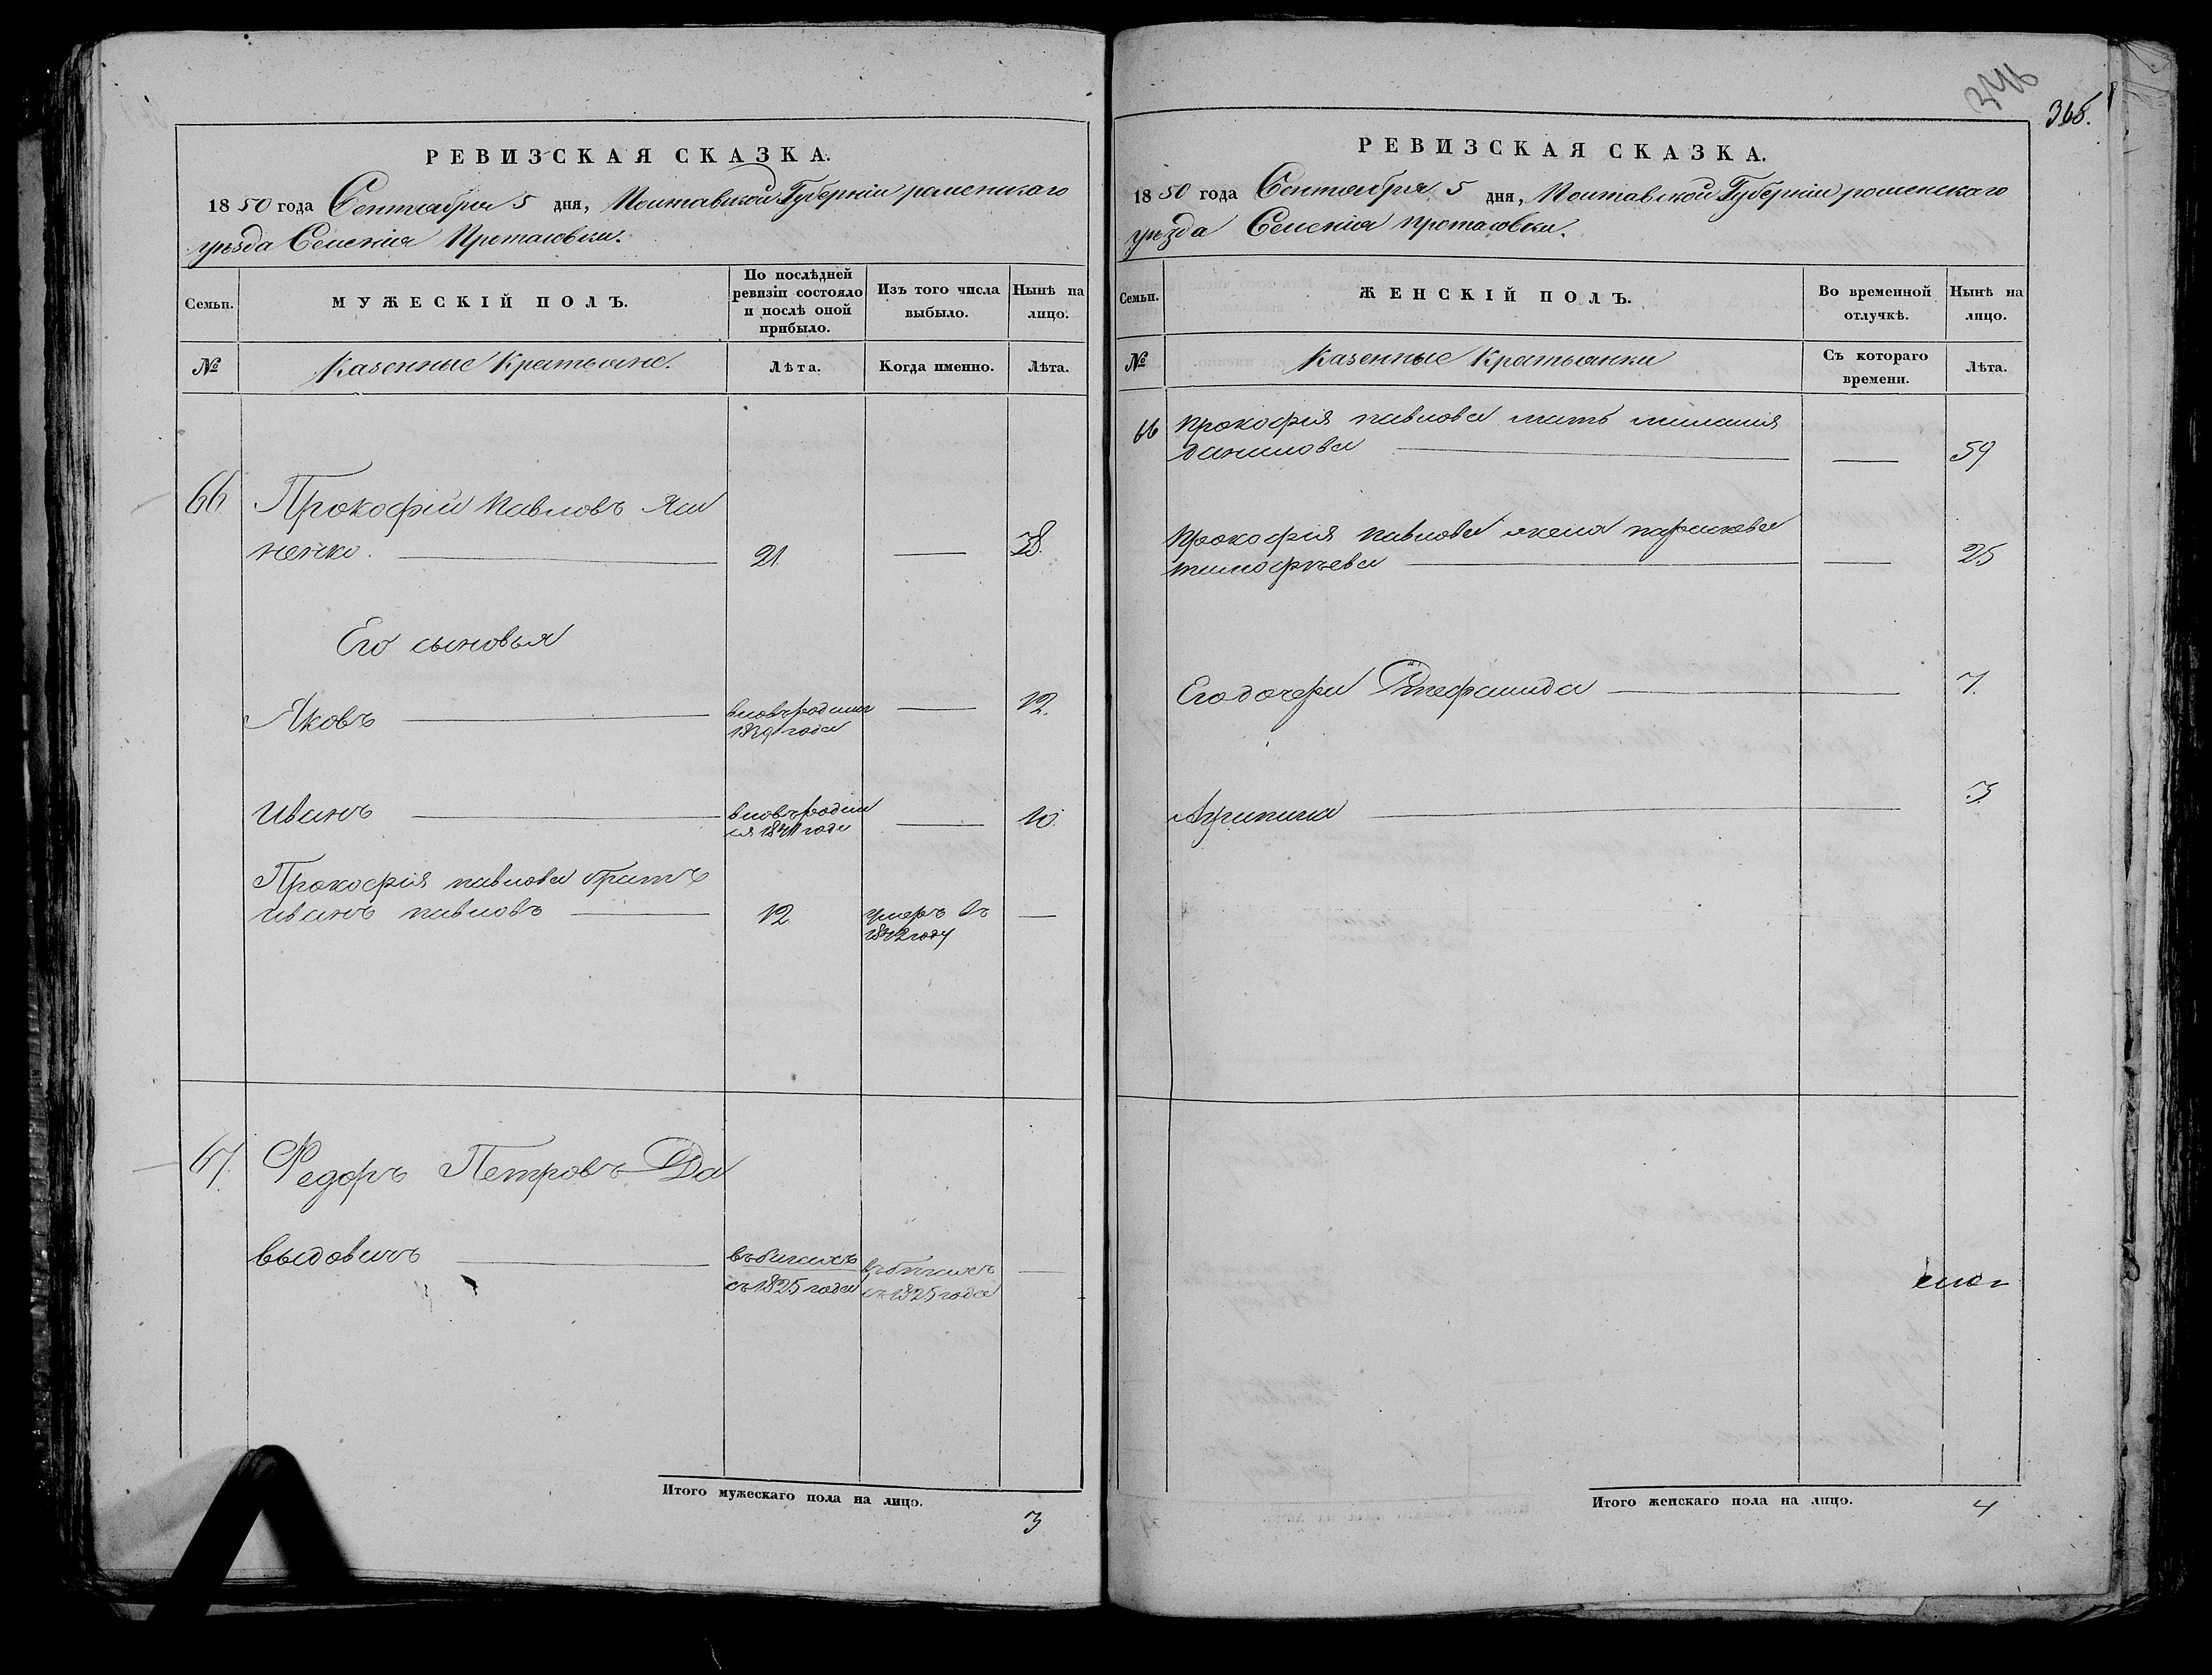 РЕВИЗСКАЯ СКАЗКА.
1850 года Сентября 5 дня, Полтавской Губерніи роменскаго
уѣзда Селенія Протасовки.
Семьи.
МУЖЕСКІЙ ПОЛЪ.
По послѣдней
ревизіи состояло
и послѣ оной
прибыло.
Изъ того числа
выбыло.
Нынѣ на
лицо.
№
Казенные Крестьяне.
Лѣта.
Когда именно.
Лѣта.
66 Прокофій Павловъ
ненко. 21. 38.
Его сыновья
Яковъ вновьродился 12.
1839 года
Иванъ вновьродил 10.
ся 1841 года
Прокофія павлова братъ
иванъ павловъ 12 умеръ въ
1842 году
67. Федоръ Петровъ Да
выдовичъ въбегахъ въбегахъ
съ1825 года съ1825 года
Итого мужескаго пола на лицо.
3
346
365.
РЕВИЗСКАЯ СКАЗКА.
1850 года Сентября 5 дня, Полтавской Губерніи роменскаго
уѣзда Селенія протасовки.
Семьи.
ЖЕНСКІЙ ПОЛЪ.
Во временной
отлучкѣ.
Нынѣ на
лицо.
№
Казенные Крестьянки
Съ котораго
времени.
Лѣта.
66 Прокофія павлова мать
данилова 59
Прокофія павлова жена парасковья
тимофѣева 25
Его дочери Стефанида 7.
Агрипина 3.
Итого женскаго пола на лицо. 4